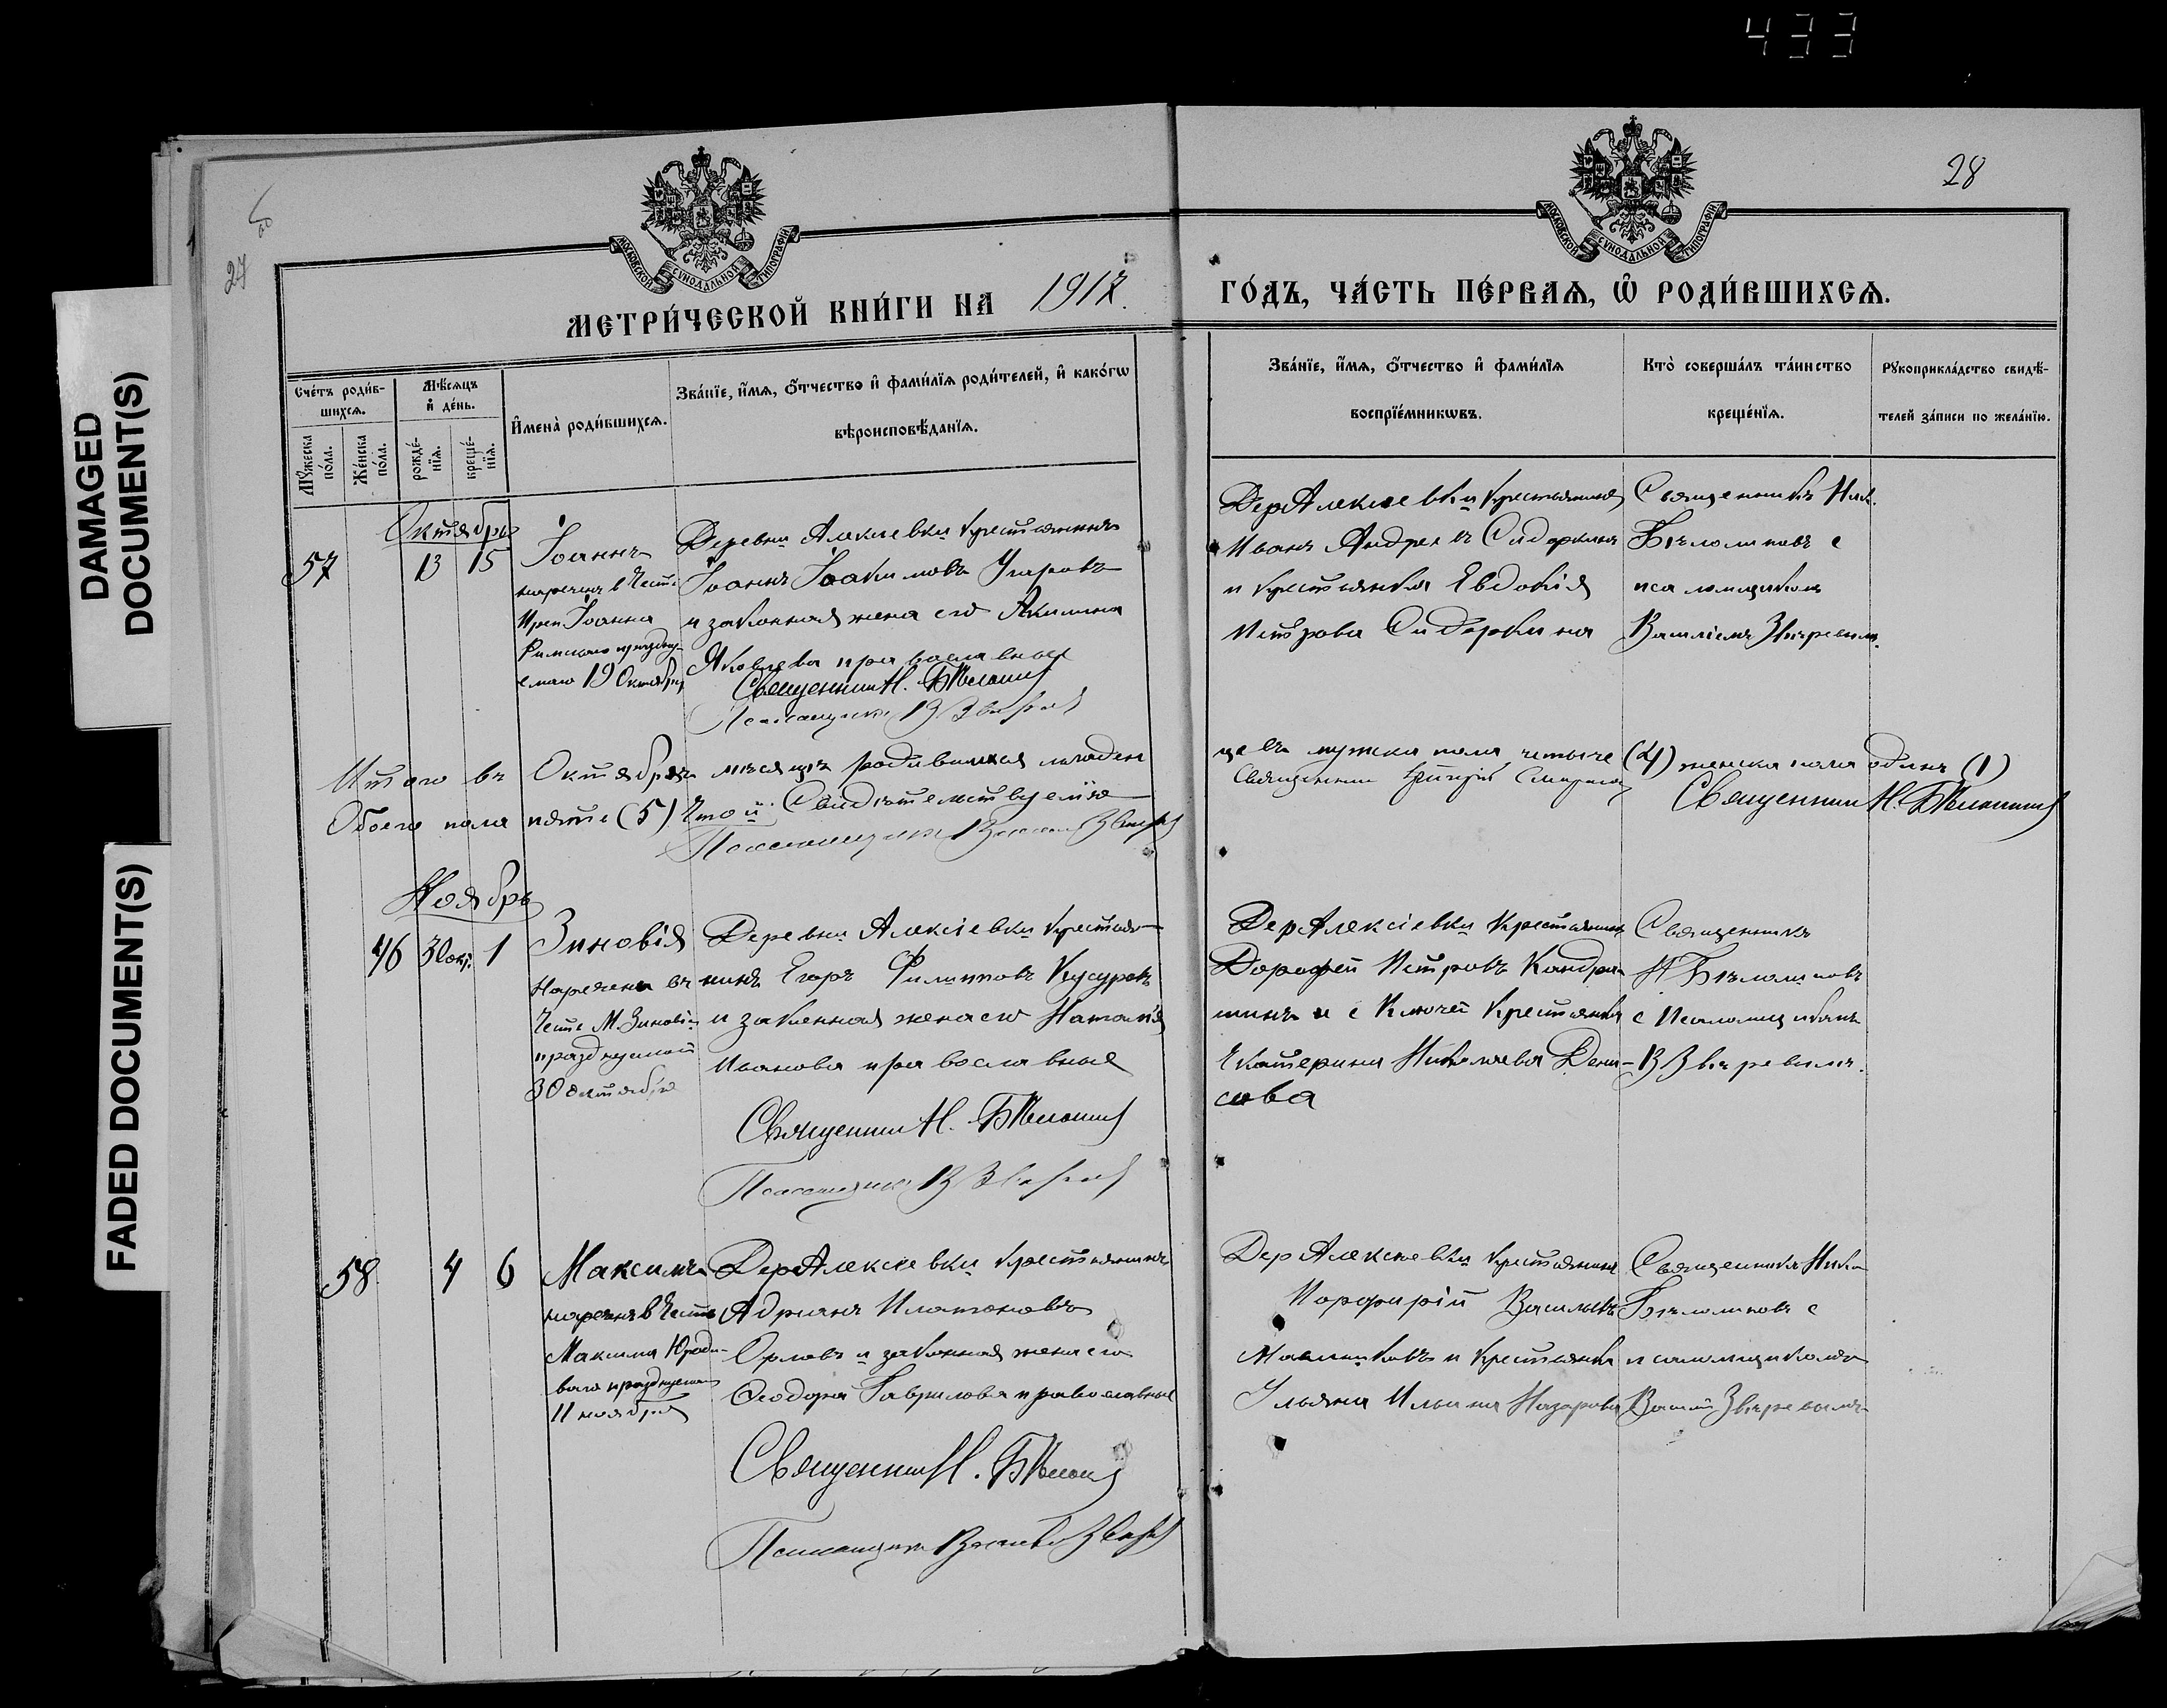 433
DAMAGED
DOCUMENT(S)
FADED DOCUMENT(S)
27
28
МОСКОВСКОЙ СѴНОДАЛЬНОЙ ТИПОГРАФІИ
МОСКОВСКОЙ СѴНОДАЛЬНОЙ ТИПОГРАФІИ
МЕТРИ́ЧЕСКОЙ КНИ́ГИ НА 1917.
ГО́ДЪ, ЧА́СТЬ ПЕ́РВАѦ, Ѡ РОДИ́ВШИХСѦ.
Сче́тъ роди́в-
шихсѧ.
Мꙋ́жеска
по́ла.
Же́нска
по́ла.
Мѣ́сѧцъ
и҆ де́нь.
рожде́-
нїѧ.
креще́-
нїѧ.
И҆мена̀ роди́вшихсѧ.
Зва́нїе, и҆́мѧ, ѻ҆́тчество и҆ фами́лїѧ роди́телей, и҆ како́гѡ
вѣроисповѣ́данїѧ.
Зва́нїе, и҆́мѧ, ѻ҆́тчество и҆ фами́лїѧ
воспрїе́мникѡвъ.
Кто̀ соверша́лъ та́инство
креще́нїѧ.
Рꙋкоприкла́дство свидѣ́-
телей за́писи по жела́нїю.
Октябрь
57
13 15
Іоаннъ
нареченъ в честь
Преп Іоанна
Римскаго праздну-
емаго 19 Октября
Деревни Алексіевки крестьянинъ
Іоаннъ Іоакимовъ Умаровъ
и законная жена его Акилина
Яковлева православные
Священник Н. Бѣломи
Псаломщикъ В Звѣрев
Дер Алексіевки крестьянинъ
Иванъ Андреевъ Сидоркинъ
и крестьянка Евдокія
Петрова Сидоркина
Священникъ Ник.
Бѣлолиповъ с
псаломщикомъ
Василіемъ Звѣревымъ.
Итого въ Октябрѣ мѣсяцѣ родившихся младен
цевъ мужска пола четыре (4) женска пола одинъ (1)
Обоего пола пять (5) Что и Свидѣтельствуемъ
Священник Смирнов
Священник Н. Бѣлолипов
Псаломщикъ Василій Звѣрев
Ноябрь
46 30 окт. 1
Зиновія
Наречена въ
Честь М. Зиновіи
празднуемой
30 октября
Деревни Алексіевки крестья-
нинъ Егоръ Филипповъ Кусуровъ
и законная жена его Наталія
Иванова православные
Священник Н. Бѣлолипов
Псаломщикъ В Звѣрев
Дер Алексіевки крестьянинъ
Дорофей Петровъ Кондра-
шинъ и с Ключей Крестьянка
Екатерина Николаева Дени-
сова
Священникъ
Н Бѣлолиповъ
с Псаломщикомъ
В Звѣревымъ.
58
4 6
Максимъ
нареченъ в Честь
Максима Юроди-
ваго празднуемаго
11 ноября
Дер Алексіевки крестьянинъ
Адріанъ Платоновъ
Орловъ и законная жена его
Ѳеодора Гаврилова православные
Священник Н. Бѣлолип
Псаломщикъ Василій Звѣрев
Дер Алексіевки крестьянинъ
Порфирій Васильевъ
Масленковъ и крестьянка
Ульяна Ильина Назарова
Священникъ Нико
Бѣлолиповъ с
псаломщикомъ
Васил Звѣревымъ